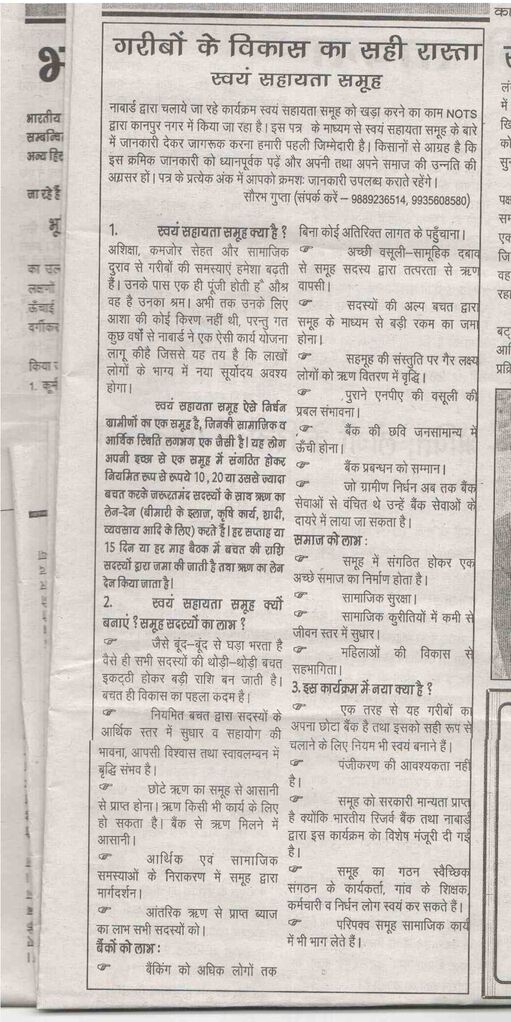 गरीबों के विकास का सही रास्ता
स्वयं सहायता समूह
नाबार्ड द्वारा चलाये जा रहे कार्यक्रम स्वयं सहायता समूह को खड़ा करने का काम NOTS
द्वारा कानपुर नगर में किया जा रहा है। इस पत्र के माध्यम से स्वयं सहायता समूह के बारे
में जानकारी देकर जागरूक करना हमारी पहली जिम्मेदारी है। किसानों से आग्रह है कि
इस क्रमिक जानकारी को ध्यानपूर्वक पढ़ें और अपनी तथा अपने समाज की उन्नति की
अग्रसर हों। पत्र के प्रत्येक अंक में आपको क्रमशः जानकारी उपलब्ध कराते रहेंगे।
सौरभ गुप्ता (संपर्क करें – 9889236514, 9935608580)
1. स्वयं सहायता समूह क्या है ?
अशिक्षा, कमजोर सेहत और सामाजिक
दुराव से गरीबों की समस्याएं हमेशा बढ़ती
हैं। उनके पास एक ही पूंजी होती है और
वह है उनका श्रम। अभी तक उनके लिए
आशा की कोई किरण नहीं थी, परन्तु गत
कुछ वर्षों से नाबार्ड ने एक ऐसी कार्य योजना
लागू कीहै जिससे यह तय है कि लाखों
लोगों के भाग्य में नया सूर्योदय अवश्य
होगा।
स्वयं सहायता समूह ऐसे निर्धन
ग्रामीणों का एक समूह है, जिनकी सामाजिक व
आर्थिक स्थिति लगभग एक जैसी है। यह लोग
अपनी इच्छा से एक समूह में संगठित होकर
नियमित रूप से रूपये 10, 20 या उससे ज्यादा
बचत करके जरूरतमंद सदस्यों के साथ ऋण का
लेन-देन (बीमारी के इलाज, कृषि कार्य, शादी,
व्यवसाय आदि के लिए) करते हैं। हर सप्ताह या
15 दिन या हर माह बैठक में बचत की राशि
सदस्यों द्वारा जमा की जाती है तथा ऋण का लेन
देन किया जाता है।
2. स्वयं सहायता समूह क्यों
बनाएं ? समूह सदस्यों का लाभ ?
☞ जैसे बूंद–बूंद से घड़ा भरता है
वैसे ही सभी सदस्यों की थोड़ी–थोड़ी बचत
इकट्ठी होकर बड़ी राशि बन जाती है।
बचत ही विकास का पहला कदम है।
☞ नियमित बचत द्वारा सदस्यों के
आर्थिक स्तर में सुधार व सहायोग की
भावना, आपसी विश्वास तथा स्वावलम्बन में
बृद्धि संभव है।
☞ छोटे ऋण का समूह से आसानी
से प्राप्त होना। ऋण किसी भी कार्य के लिए
हो सकता है। बैंक से ऋण मिलने में
आसानी।
☞ आर्थिक एवं सामाजिक
समस्याओं के निराकरण में समूह द्वारा
मार्गदर्शन।
☞ आंतरिक ऋण से प्राप्त ब्याज
का लाभ सभी सदस्यों को।
बैंकों को लाभ :
☞ बैंकिंग को अधिक लोगों तक
बिना कोई अतिरिक्त लागत के पहुँचाना।
☞ अच्छी वसूली–सामूहिक दबाव
से समूह सदस्य द्वारा तत्परता से ऋण
वापसी।
☞ सदस्यों की अल्प बचत द्वारा
समूह के माध्यम से बड़ी रकम का जमा
होना।
☞ सहमूह की संस्तुति पर गैर लक्ष्य
लोगों को ऋण वितरण में वृद्धि।
☞ पुराने एनपीए की वसूली की
प्रबल संभावना।
☞ बैंक की छवि जनसामान्य में
ऊँची होना।
☞ बैंक प्रबन्धन को सम्मान।
☞ जो ग्रामीण निर्धन अब तक बैंक
सेवाओं से वंचित थे उन्हें बैंक सेवाओं के
दायरे में लाया जा सकता है।
समाज को लाभ :
☞ समूह में संगठित होकर एक
अच्छे समाज का निर्माण होता है।
☞ सामाजिक सुरक्षा।
☞ सामाजिक कुरीतियों में कमी से
जीवन स्तर में सुधार।
☞ महिलाओं की विकास से
सहभागिता।
3. इस कार्यक्रम में नया क्या है ?
☞ एक तरह से यह गरीबों का
अपना छोटा बैंक है तथा इसको सही रूप से
चलाने के लिए नियम भी स्वयं बनाने हैं।
☞ पंजीकरण की आवश्यकता नहीं
है।
☞ समूह को सरकारी मान्यता प्राप्त
है क्योंकि भारतीय रिजर्व बैंक तथा नाबार्ड
द्वारा इस कार्यक्रम को विशेष मंजूरी दी गई
है।
☞ समूह का गठन स्वैच्छिक
संगठन के कार्यकर्ता, गांव के शिक्षक,
कर्मचारी व निर्धन लोग स्वयं कर सकते हैं।
☞ परिपक्व समूह सामाजिक कार्य
में भी भाग लेते हैं।
भारतीय
सम्बन्धि
अन्य हि
जा रहे हैं
भू
का उत्त
लक्षणों
ऊँचाई
वर्गीकर
किया ज